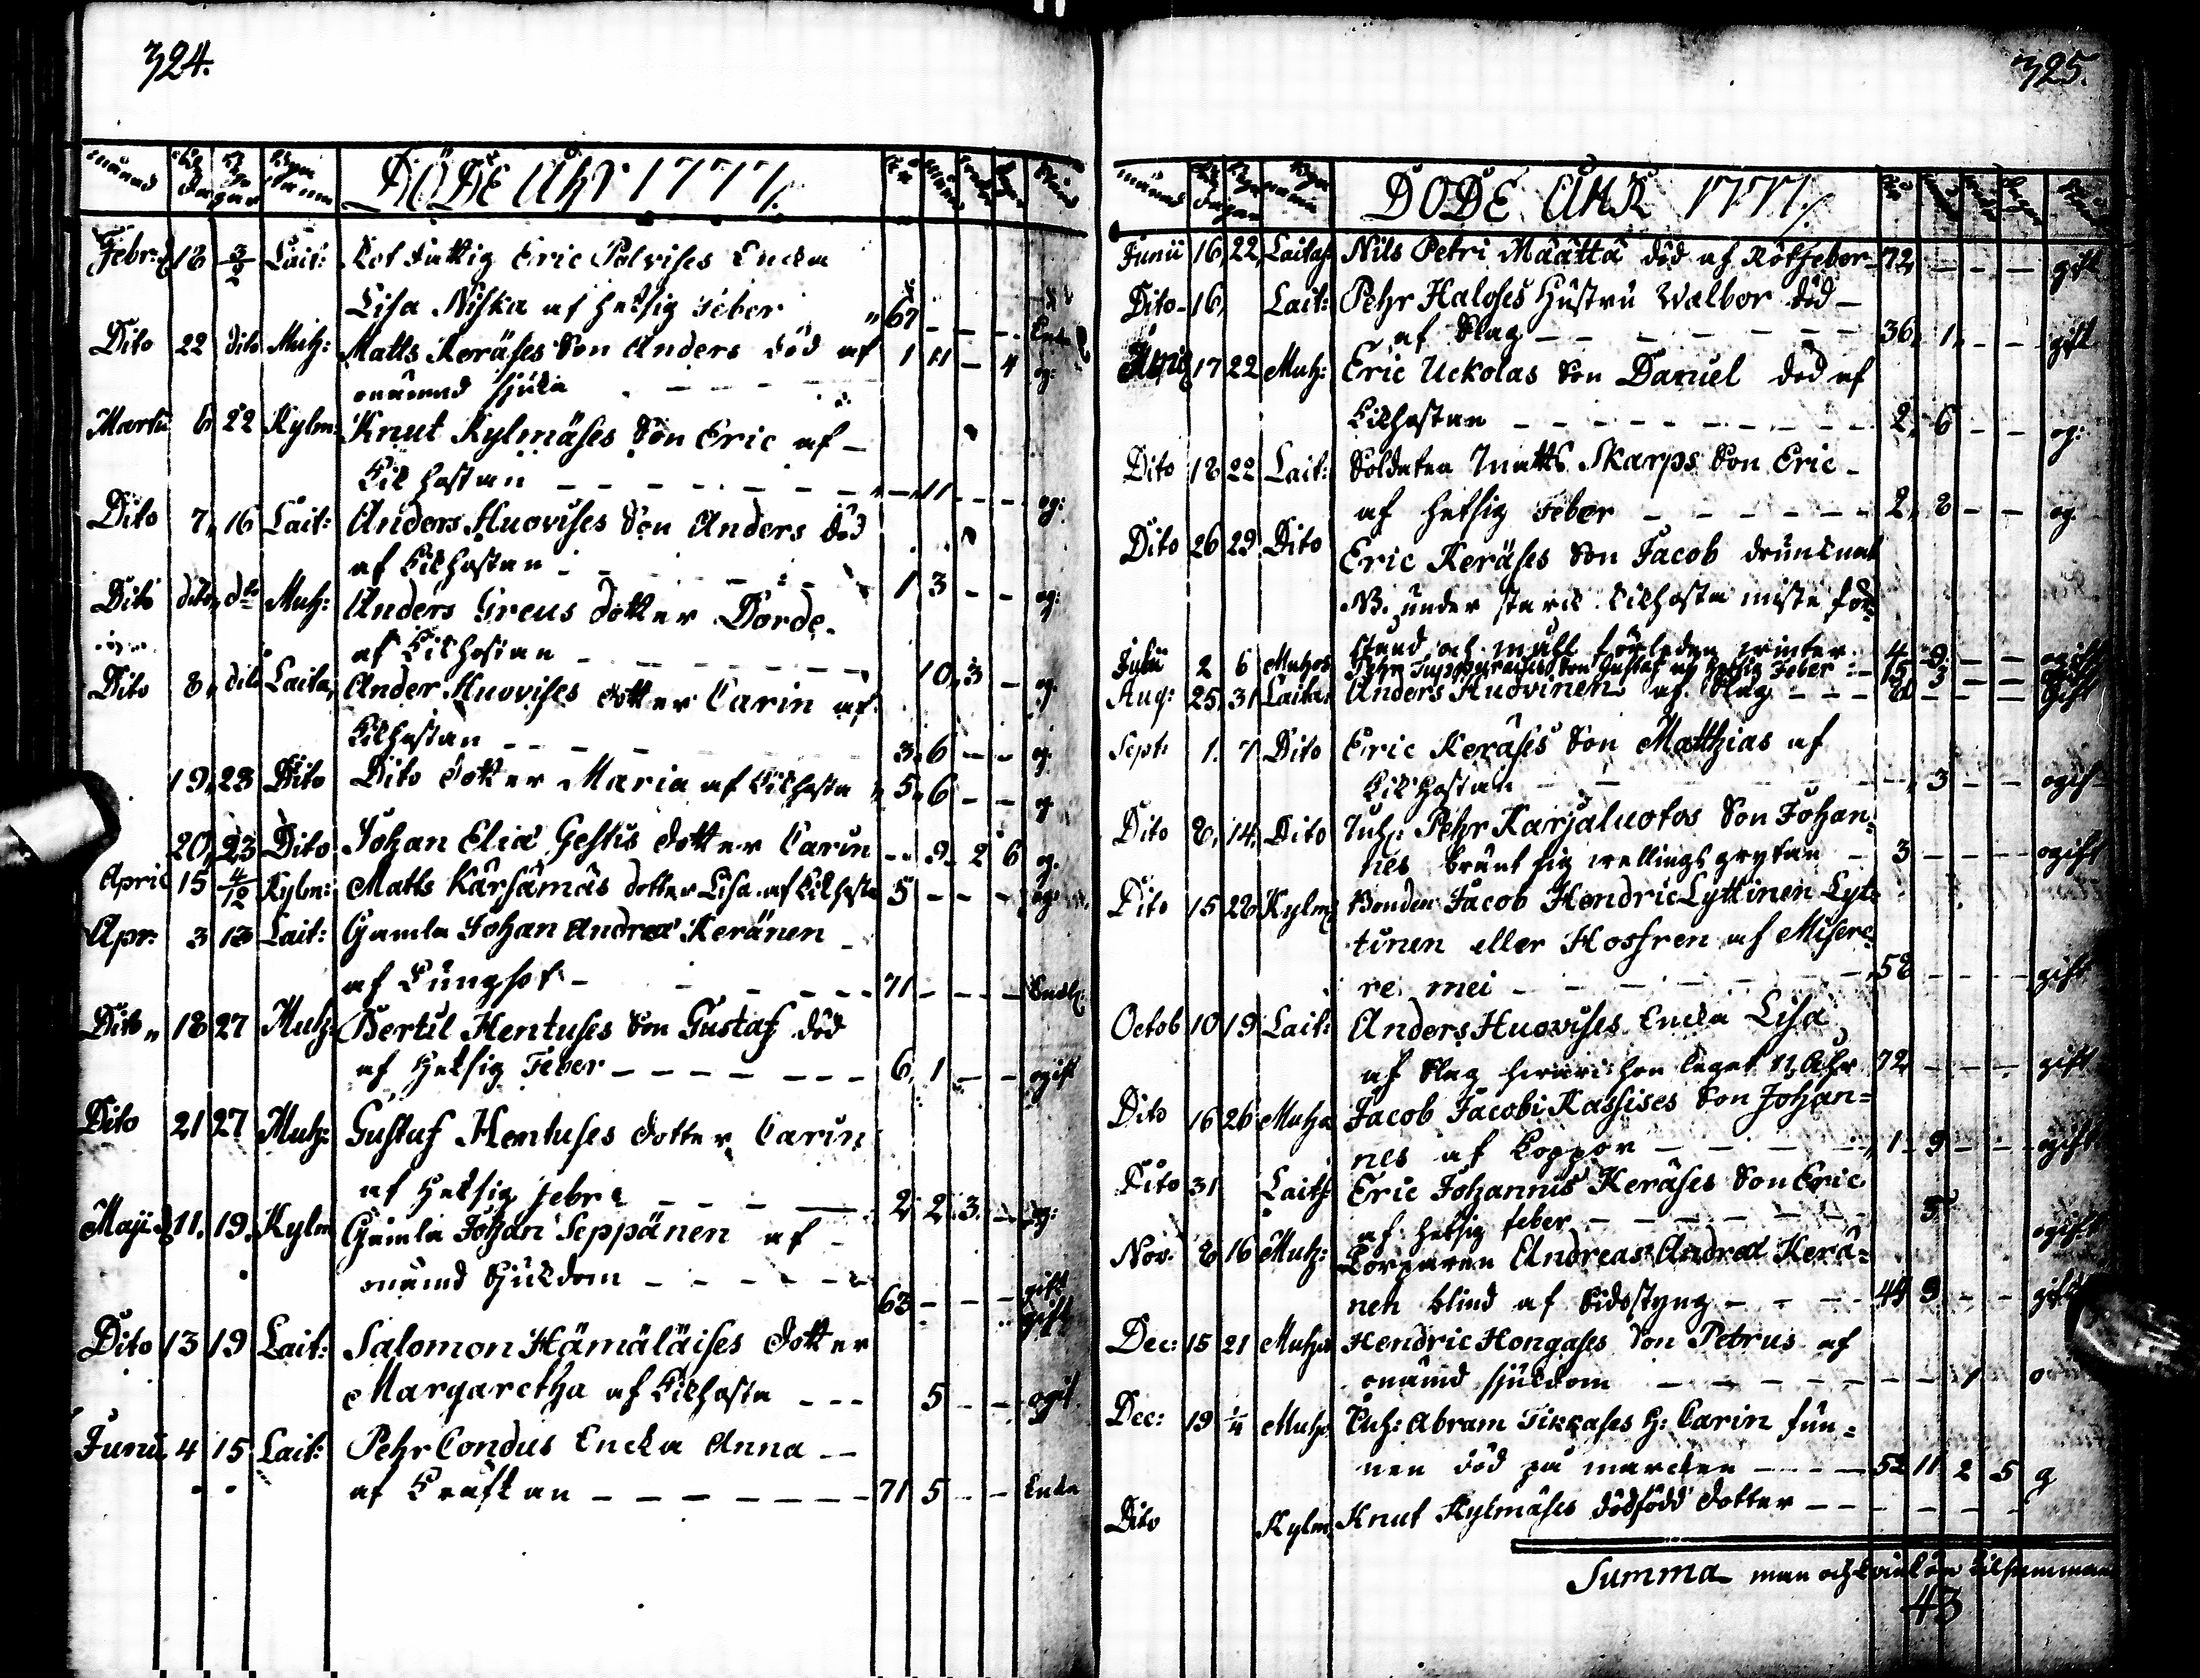 324.
månad DÖDE Åhr 1777.
Febr: 18 3/2 Lait: Rot fattig Eric Polvises Encka
Lisa Niska af hetsig feber 67 - - - Encka
Dito 22 dito Muh: Matts Keräses Son Anders död af 1 11 - 4 og:
onämnd sjuka
Martii 6 22 Kylm: Knut Kylmäses Son Eric af -
Kikhostan - 11 - - og:
Dito 7 16 Lait: Anders Huovises Son Anders död
af Kikhostan 1 3 - - og:
Dito dito dto Muh: Anders Greus dotter Dorde.
af Kikhostan 10 3 - og.
Dito 8 dito Laita Ander Huovises dotter Carin af
Kikhostan 3 6 - - og.
19 23 Dito Dito dotter Maria af Kikhosta 5 6 - - og
20 23 Dito Johan Eliæ Gestis dotter Carin - 9 2 6 og.
April 15 4/12 Kylm: Matts Kärsämäs dotter Lisa af Kikhosta 5 - - - og:
Apr: 3 13 Lait: Gamla Johan Andreæ Keränen
af Lungsot - 71 - - - Enckl:
Dito 18 27 Muh: Bertil Hentuses Son Gustaf död
af Hetsig Feber 6 1 - - ogift
Dito 21 27 Muh: Gustaf Hentuses dotter Carin
af Hetsig febr: 2 2 3 - og:
Maji 11. 19. Kylm Gamla Johan Seppänen af
onämd Sjukdom 63 - - - gift
gift
Dito 13 19 Lait: Salomon Hämäläises dotter
Margaretha af Kikhosta 5 - - ogift
Junii 4 15 Lait: Pehr Condus Encka Anna -
af Kräftan 71 5 - - Encka
325.
månad DÖDE ÅHR 1777.
Junii 16, 22, Laitas: Nils Petri Määttä död af Rötfeber 72 - - - gift
Dito 16, Lait: Pehr Haloses Hustru Walbor död -
af Slag 36, 1, - - gift
17 22 Muh: Eric Uckolas Son Daniel död af
Kikhostan 2, 6 - - og:
Dito 18 22 Lait: Soldaten Matts Skarps Son Eric -
af hetsig Feber 2, 8 - - og
Dito 26 29 Dito Eric Keräses Son Jacob drunknat
NB. under stark Kikhosta miste för=
stånd och måhl förleden winter 4 9 - - ogift
Julii 2 6 Muhos Son Gustaf af hetsig Feber 15 3 - -
Aug: 25, 31 Laita: Anders Huovinen af Slag - - - gift
Sept: 1. 7 Dito Eric Keräses Son Matthias af
Kikhostan - 3 - - ogift
Dito 8, 14. Dito Inh: Pehr Karjaluotos Son Johan=
nes bränt sig wellings grytan 3 - - - ogift
Dito 15 28 Kylm: Bonden Jacob Hendric Lyttinen Lyt=
tinen eller Hosfren af Misere=
re mei 58 - - - gift
Octob 10 19 Lait: Anders Huovises Encka Lisa
af Slag hvari hon legat 11 Åhr 72 - - - gift
Dito 16 26 Muhos Jacob Jacobi Kassises Son Johan=
nes af Koppor 1 9 - - ogift
Dito 31 Laits: Eric Johannis Keräses Son Eric
af hetsig feber 3 ogift
Nov: 8 16 Muh: Korparen Andreas Andreæ Kerä=
nen blind af Sidostyng 44 9 - - gift
Dec: 15 21 Muhos Hendric Hongases Son Petrus af
onämd sjukdom 1
Dec: 19 1/4 Muh: Enh: Abram Tikkases h: Carin fun=
nen död på marcken 52 11 2 5 g
Dito Kylm: Knut Kylmäses dödfödd dotter
Summa man och kvinkön tilsamman
43